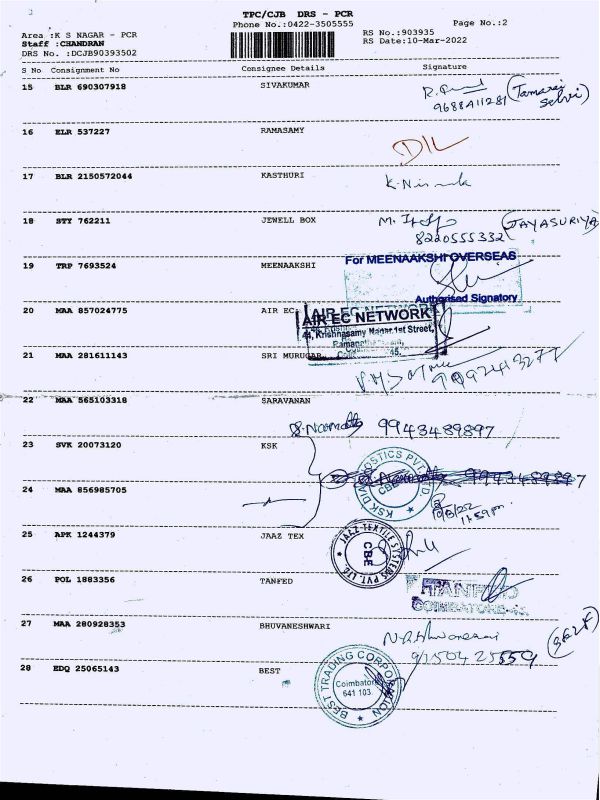 TPC/CJB DRS - PCR
Phone No.:0422-3505555
Page No.:2
Area :K S NAGAR - PCR
RS No.:903935
Staff :CHANDRAN
RS Date:10-Mar-2022
DRS No. :DCJB90393502
S No Consignment No Consignee Details Signature
15 BLR 690307918 SIVAKUMAR
9688411281
16 ELR 537227 RAMASAMY
17 BLR 2150572044 KASTHURI
18 STY 762211 JEWELL BOX
(JAYASURIYA)
8220555332
For MEENAAKSHI OVERSEAS
19 TRP 7693524 MEENAAKSHI
Authorised Signatory
20 MAA 857024775 AIR EC
AIR EC NETWORK
44, Krishnasamy Nagar,1st Street,
21 MAA 281611143 SRI MURUGAR
22 MAA 565103318 SARAVANAN
9943489897
23 SVK 20073120 KSK
KSK DIAGNOSTICS PVT. LTD.
CBE
24 MAA 856985705
25 APK 1244379 JAAZ TEX
JAAZ TEXTILE SYSTEMS PVT. LTD.
CBE
26 POL 1883356 TANFED
TANFED
27 MAA 280928353 BHUVANESHWARI
9150425559
(SELF)
28 EDQ 25065143 BEST
BEST TRADING CORPORATION
Coimbatore
641 103.